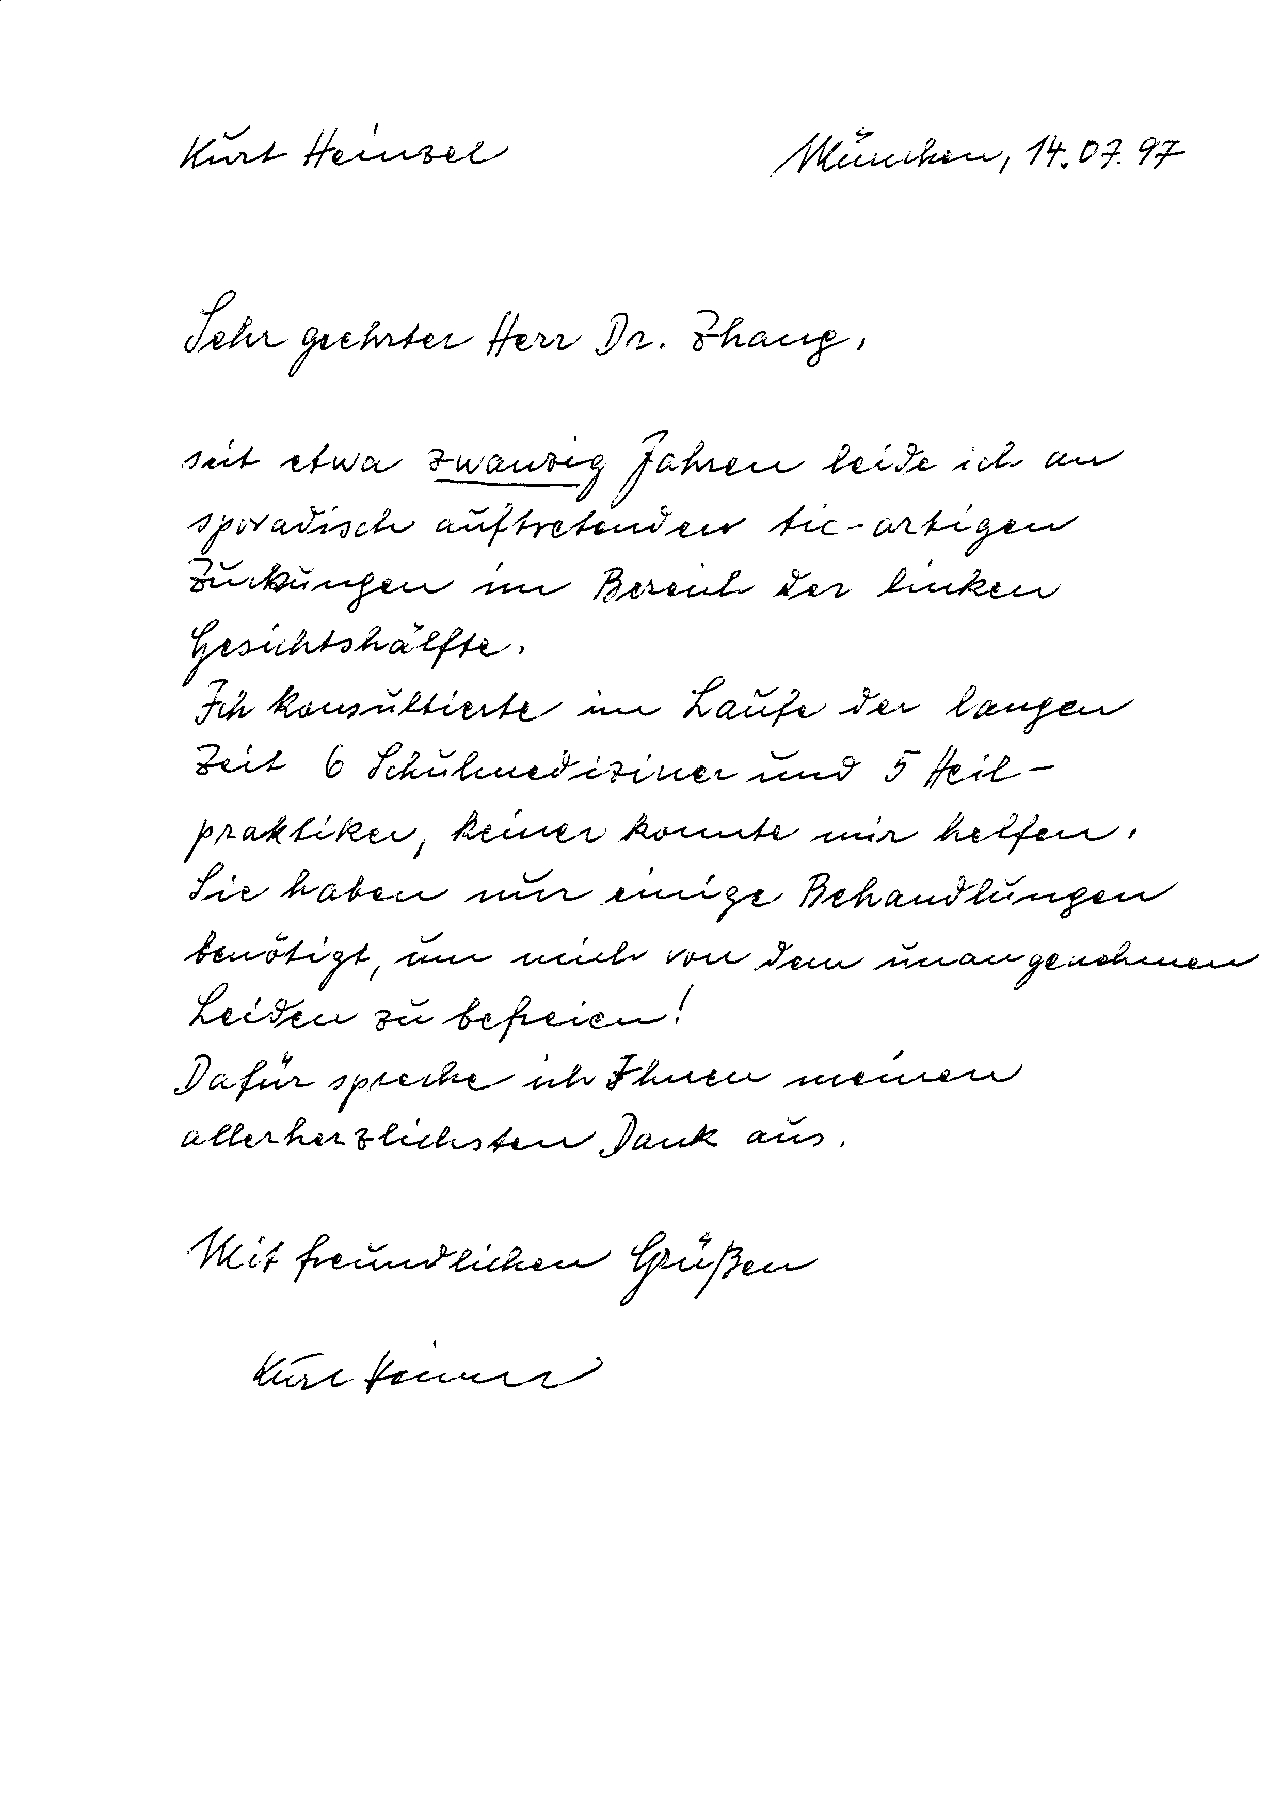 Kurt Heinzel München, 14.07.97
Sehr geehrter Herr Dr. Zhang,
seit etwa zwanzig Jahren leide ich an
sporadisch auftretenden tic-artigen
Zuckungen im Bereich der linken
Gesichtshälfte.
Ich konsultierte im Laufe der langen
Zeit 6 Schulmediziner und 5 Heil-
praktiker, keiner konnte mir helfen.
Sie haben nur einige Behandlungen
benötigt, um mich von dem unangenehmen
Leiden zu befreien!
Dafür spreche ich Ihnen meinen
allerherzlichsten Dank aus.
Mit freundlichen Grüßen
Kurt Heinzel